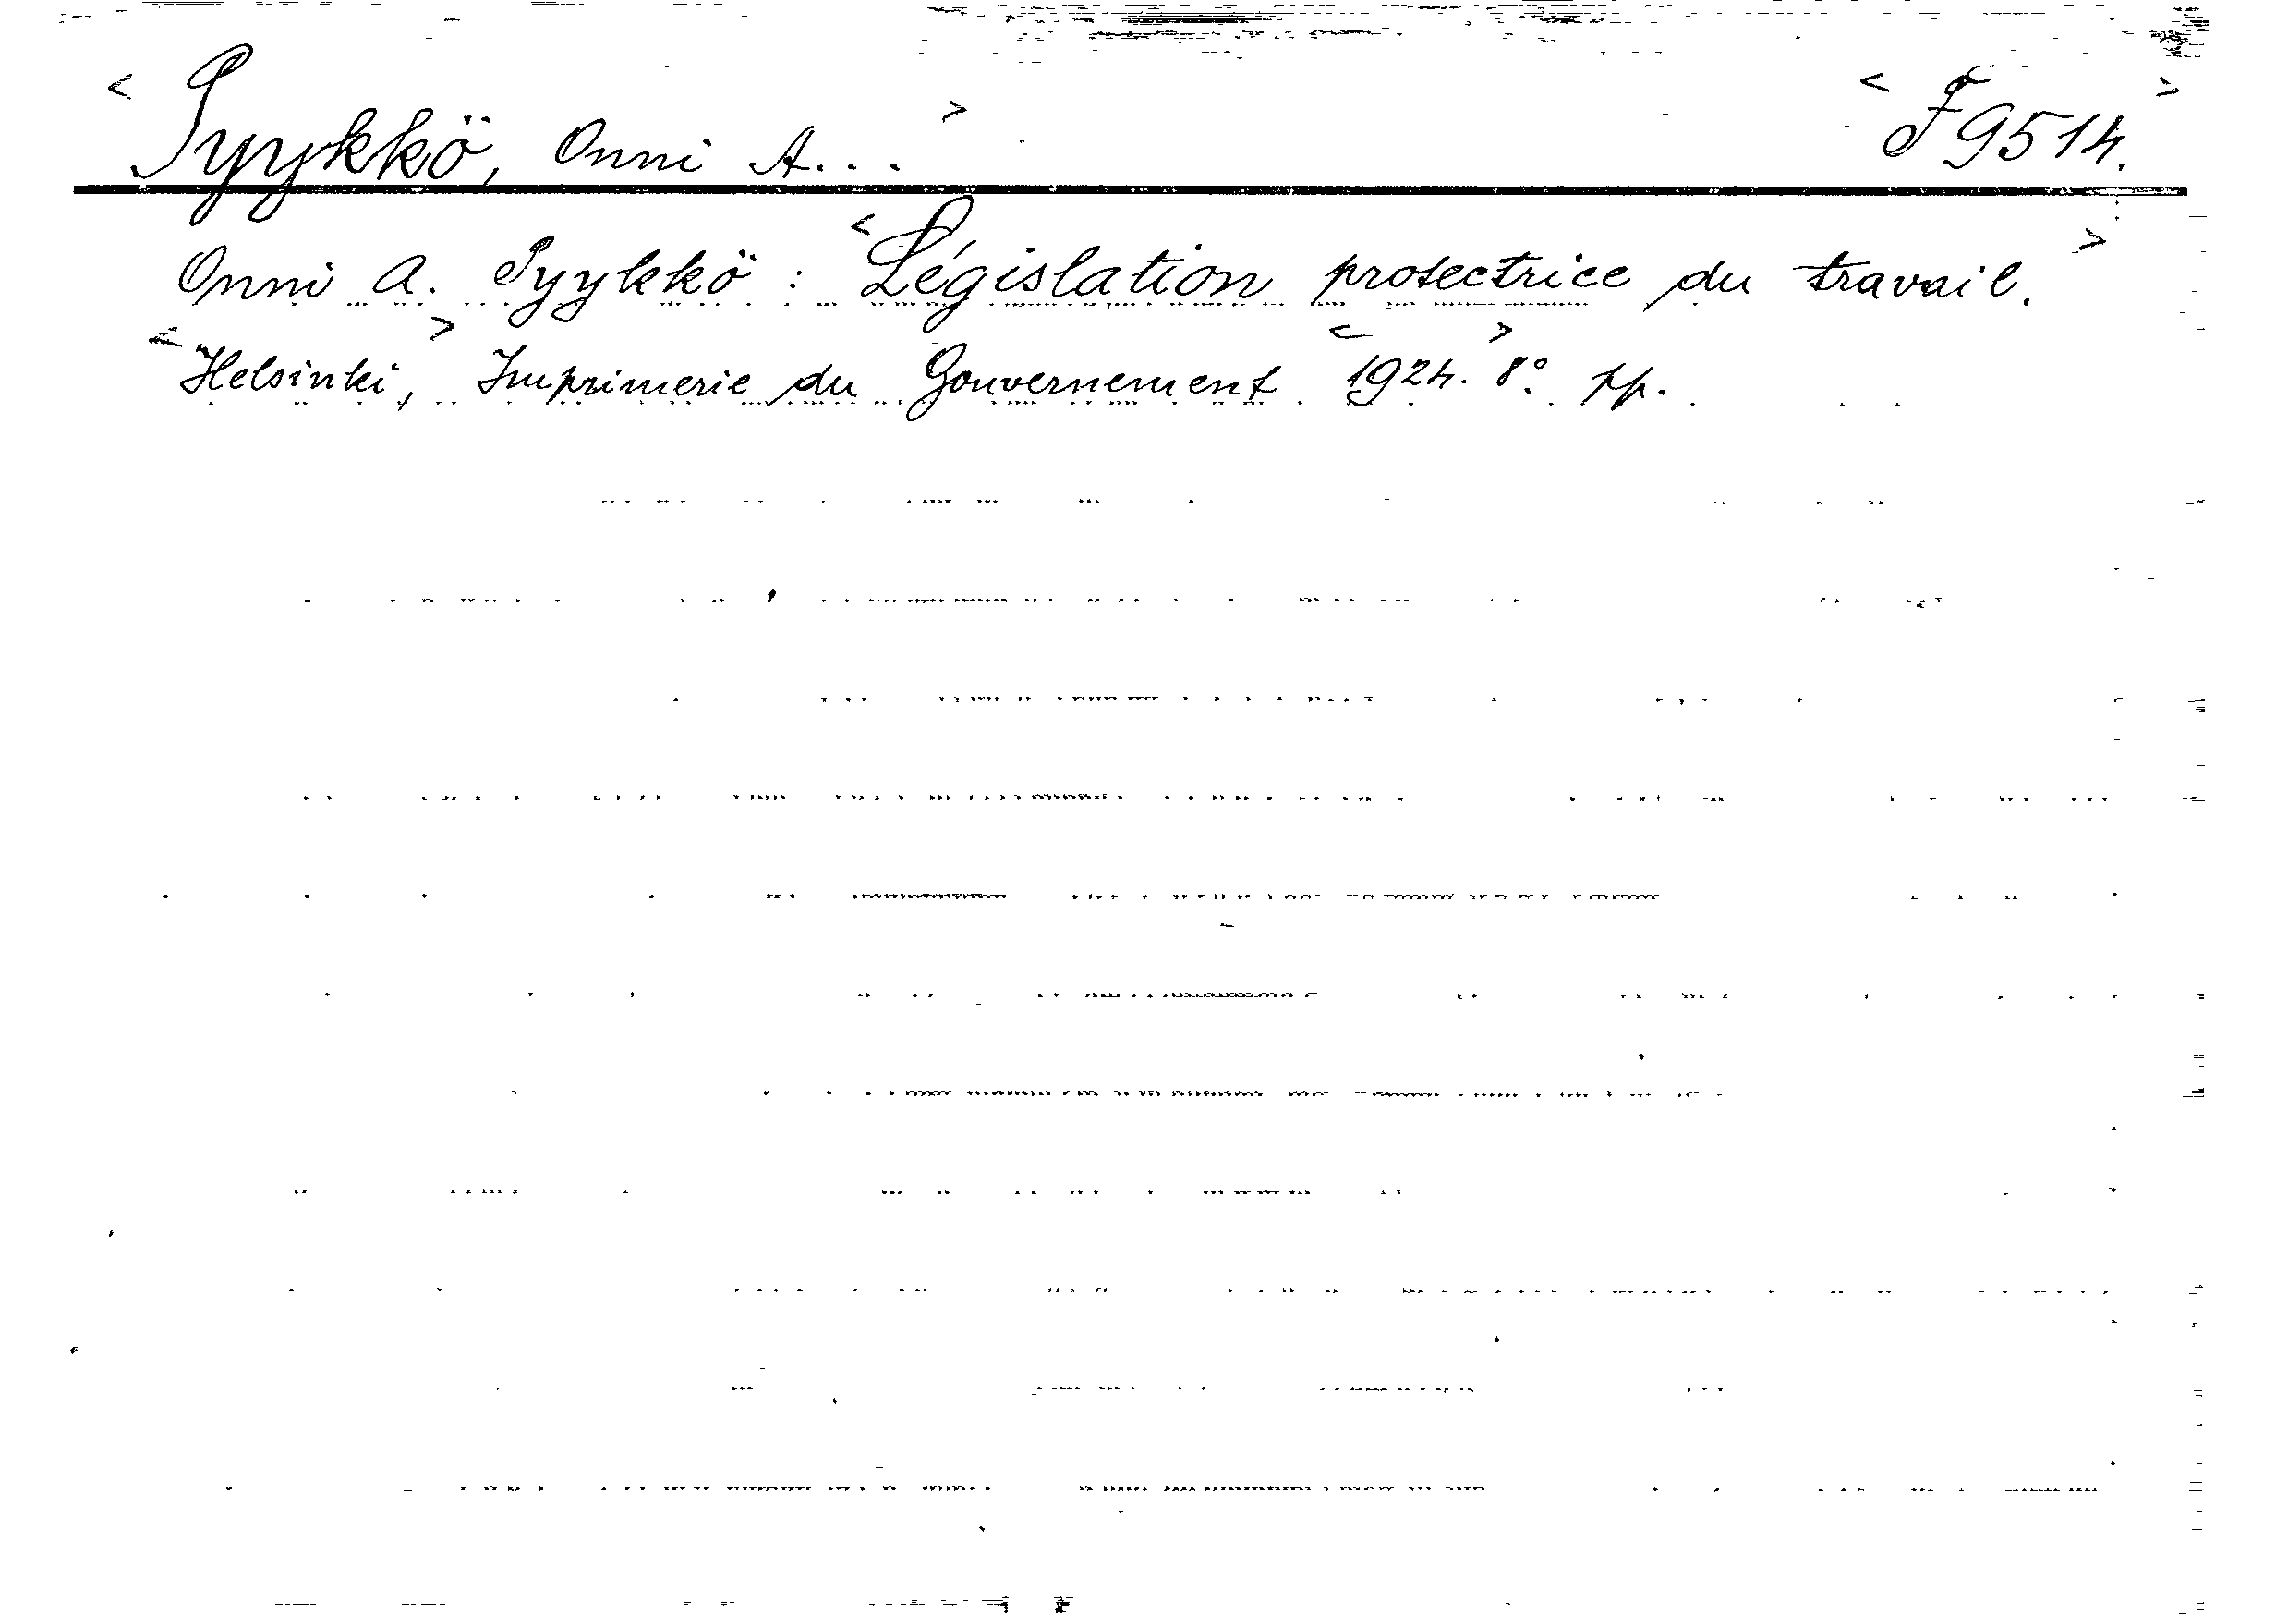 < Pyykkö, Onni A... > < F 9514. >
Onni A. Pyykkö : < Législation protectrice du travail. >
< Helsinki, > Imprimerie du Gouvernement < 1924. > 8:o pp.